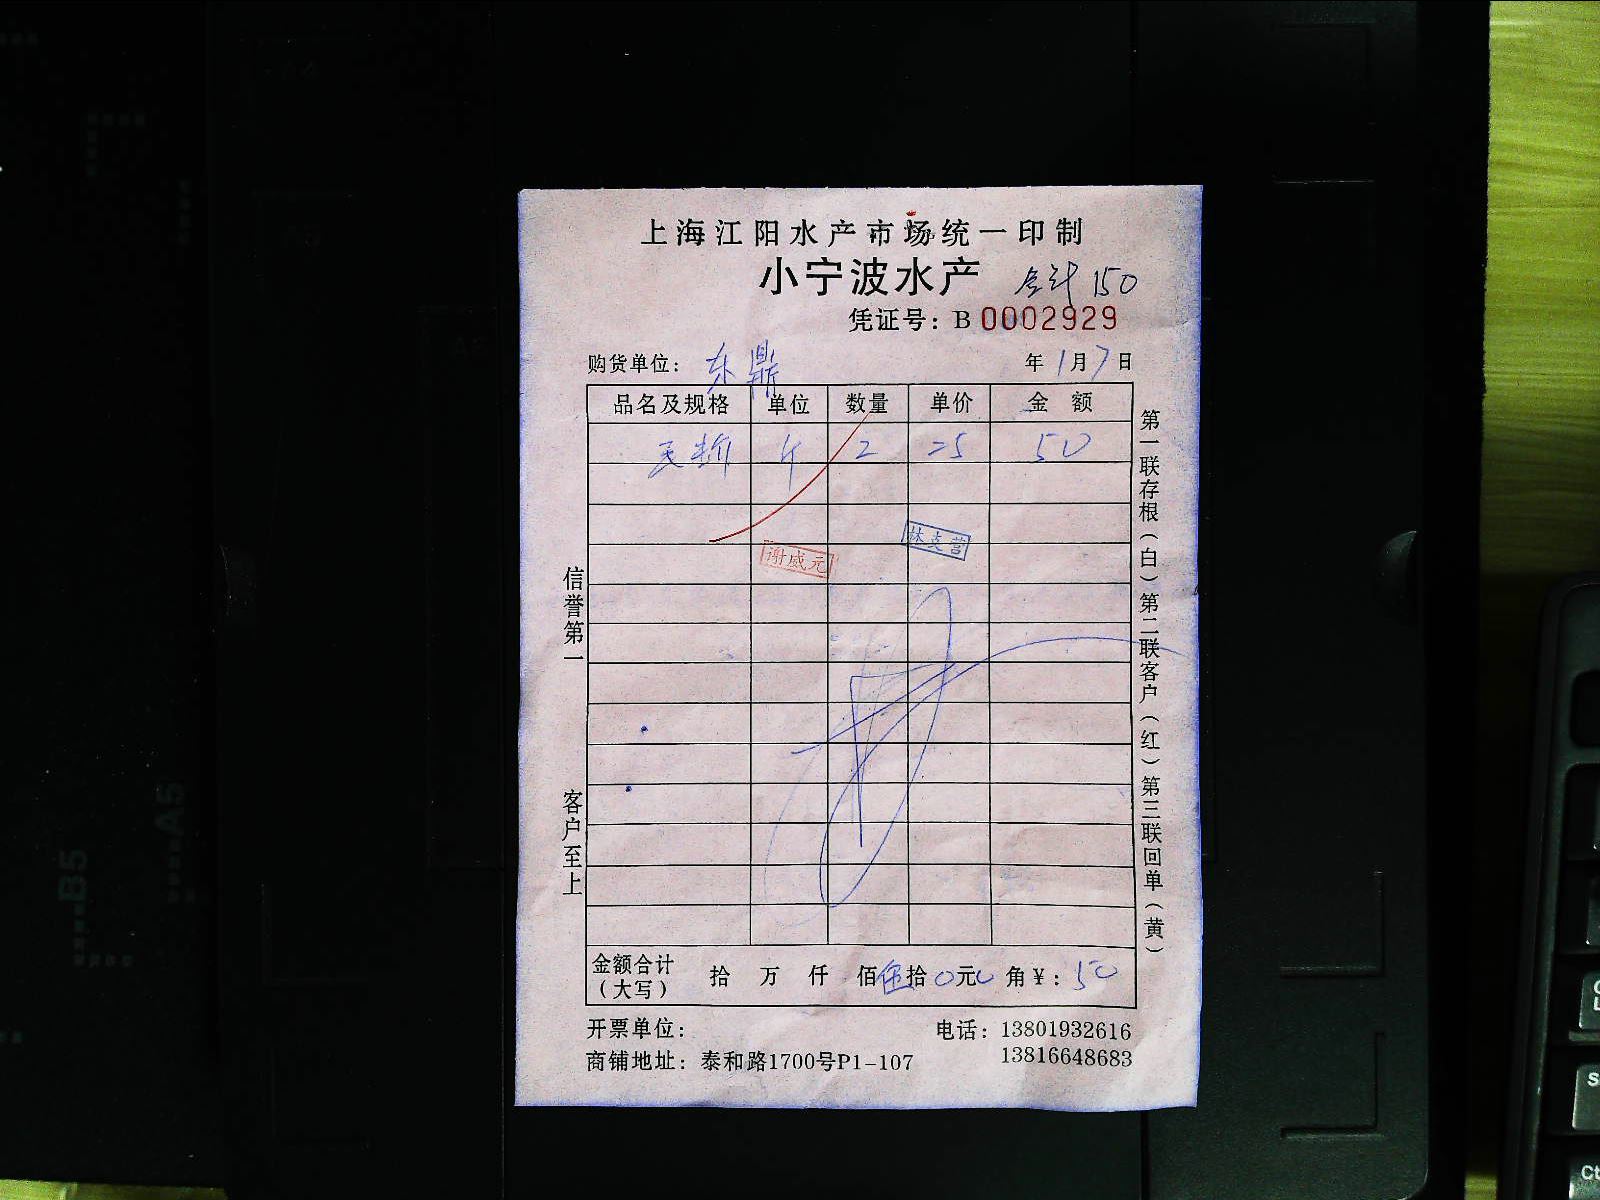 上海江阳水产市场统一印制
小宁波水产 合计150
凭证号：B 0002929
购货单位：东鼎 年1月7日
品名及规格 单位 数量 单价 金额
斤 2 25 50
谢威元
林支营
信誉第一
客户至上
第一联存根（白）第二联客户（红）第三联回单（黄）
金额合计（大写） 拾 万 仟 佰伍拾0元0角¥：50
开票单位： 电话：13801932616
商铺地址：泰和路1700号P1-107 13816648683
B5
A5